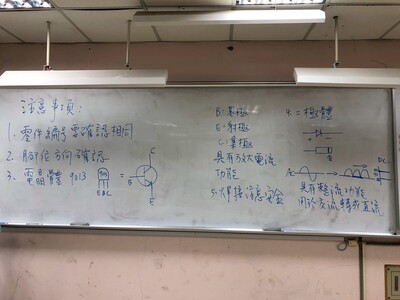 注意事項:
1. 零件編號要確認相同
2. 腳位方向確認
3. 電晶體 9013
EBC
=
B
C
E
B:基極
E:射極
C:集極
具有放大電流
功能
5.焊接注意安全
4.二極體
AC
DC
具有整流功能
用於交流轉成直流